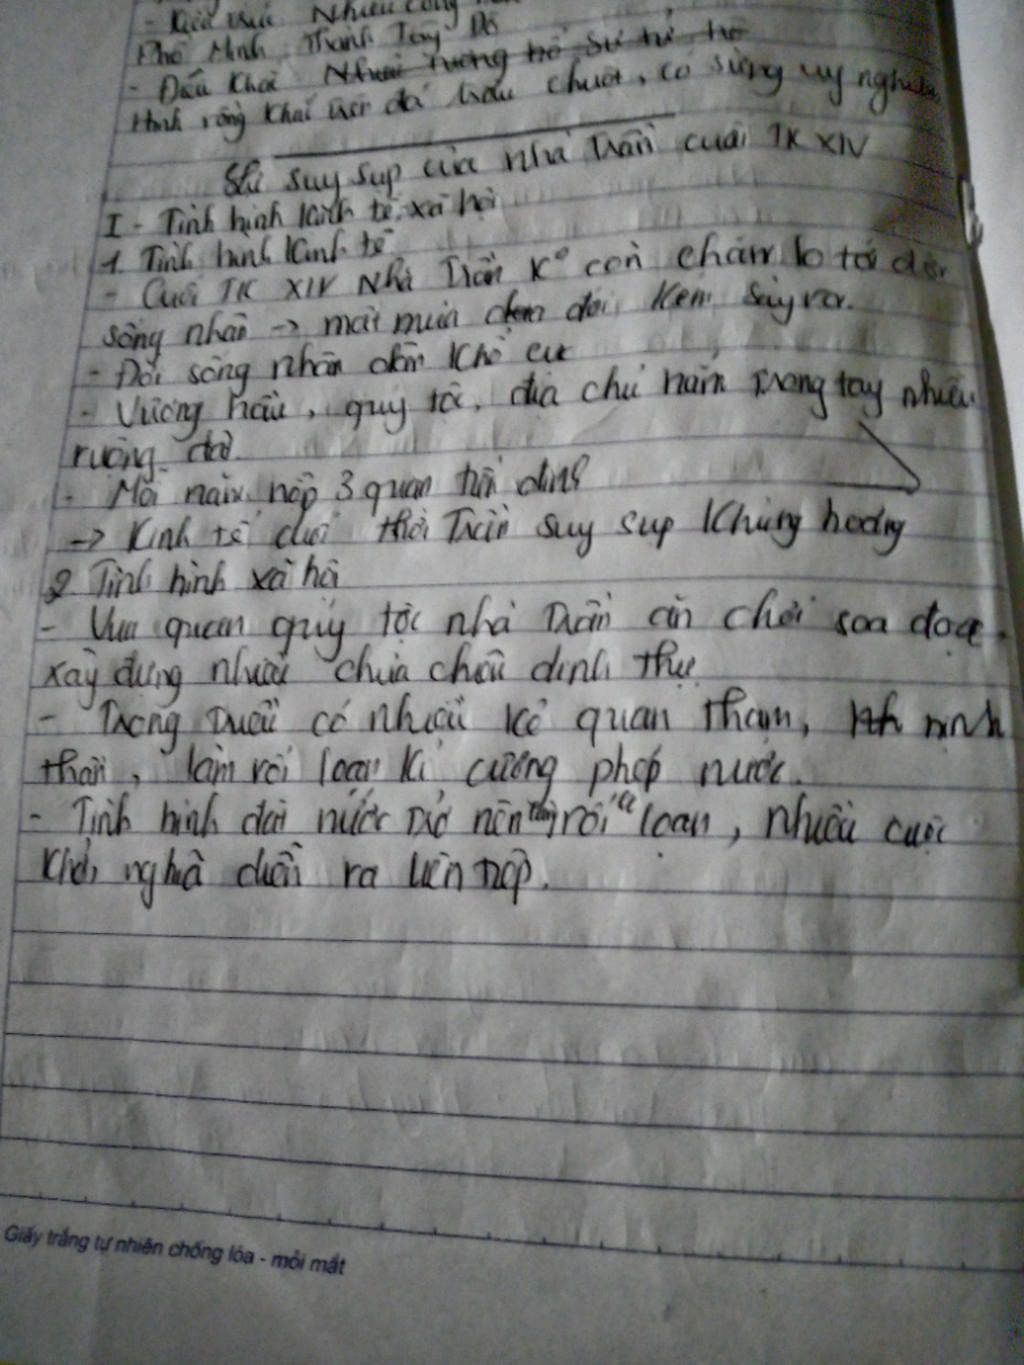 - Kiến trúc Nhiều công
Phổ Minh, Thành Tây Đô
- Điêu khắc
Hình rồng khắc trên đá trau chuốt, có sừng uy nghiêm
Sự suy sụp của nhà Trần cuối TK XIV
I - Tình hình kinh tế xã hội
1. Tình hình kinh tế
- Cuối TK XIV Nhà Trần K° còn chăm lo tới đời
sống nhân → mất mùa đói kém sảy ra.
- Đời sống nhân dân khổ cực
- Vương hầu, quý tộc, địa chủ nắm trong tay nhiều
ruộng đất
- Mỗi năm nộp 3 quan tiền đinh
→ Kinh tế cuối thời Trần suy sụp khủng hoảng
2 Tình hình xã hội
- Vua quan quý tộc nhà Trần ăn chơi soa đọa.
xây dựng nhiều chùa chiền dinh thự
- Trong triều có nhiều kẻ quan tham, nịnh
thần, làm rối loạn kỉ cương phép nước.
- Tình hình đất nước trở nên rối loạn, nhiều cuộc
khởi nghĩa diễn ra liên tiếp.
Giấy trắng tự nhiên chống lóa - mỏi mắt